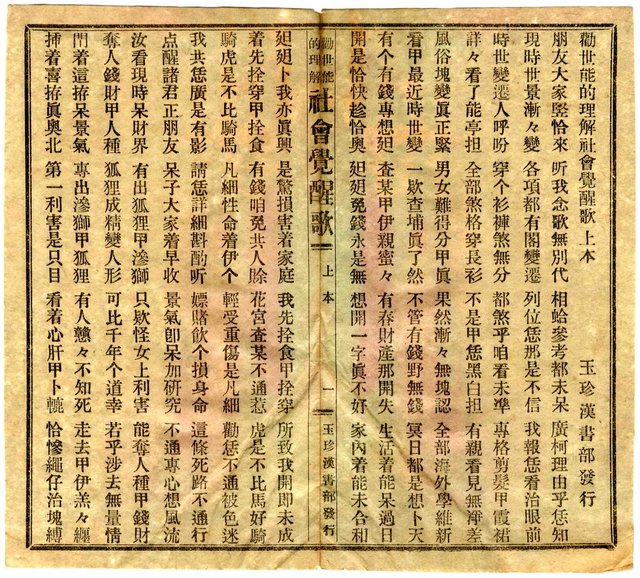 勸世能的理解社會覺醒歌上本 玉珍漢書部發行
朋友大家竪恰來 听我念歌無別代 相蛤參考都未呆 廣柯理由乎恁知
現時世景漸々變 各項都有閣變遷 列位恁那是不信 我報恁看治眼前
時世變遷人呼吩 穿个衫褲煞無分 都煞乎咱看未準 專格剪髮甲霞裙
詳々看了能亭担 全部煞格穿長衫 不是甲恁黑白担 有親看見無精差
風俗塊變眞正緊 男女難得分甲眞 果然漸々無塊認 全部海外學維新
看甲最近時世變 一欵查埔眞了然 不管有錢野無錢 冥日都是想卜天
有个有錢專想廷 查某甲伊親蜜々 有春財產那開失 生活着能呆過日
開是恰快趁恰奥 廷廷免錢永是無 想開一字眞不好 家內着能未合和
勸世能的理解 社會覺醒歌 上本 一 玉珍漢書部發行
廷廷卜我亦眞興 是驚損害着家庭 我先拴食甲拴穿 所致我開即未成
着先拴穿甲拴食 有錢咱免共人賒 花宮查某不通惹 虎是不比馬好騎
騎虎是不比騎馬 凡細性命着伊个 輕受重傷是凡細 勸恁不通被色迷
我共恁廣是有影 請恁詳細斟酌听 嫖賭飲个損身命 這條死路不通行
点醒諸君正朋友 呆子大家着早收 景氣卽呆加研究 不通專心想風流
汝看現時呆財界 有出狐狸甲滲獅 只欵怪女上利害 能奪人種甲錢財
奪人錢財甲人種 狐狸成精變人形 可比千年个道幸 若乎涉去無量情
鬥着這拵呆景氣 專出滲獅甲狐狸 有人戇々不知死 走去甲伊羔々纏
揷着喜拵眞奥北 第一利害是只目 看着心肝甲卜轆 恰慘繩仔治塊縛